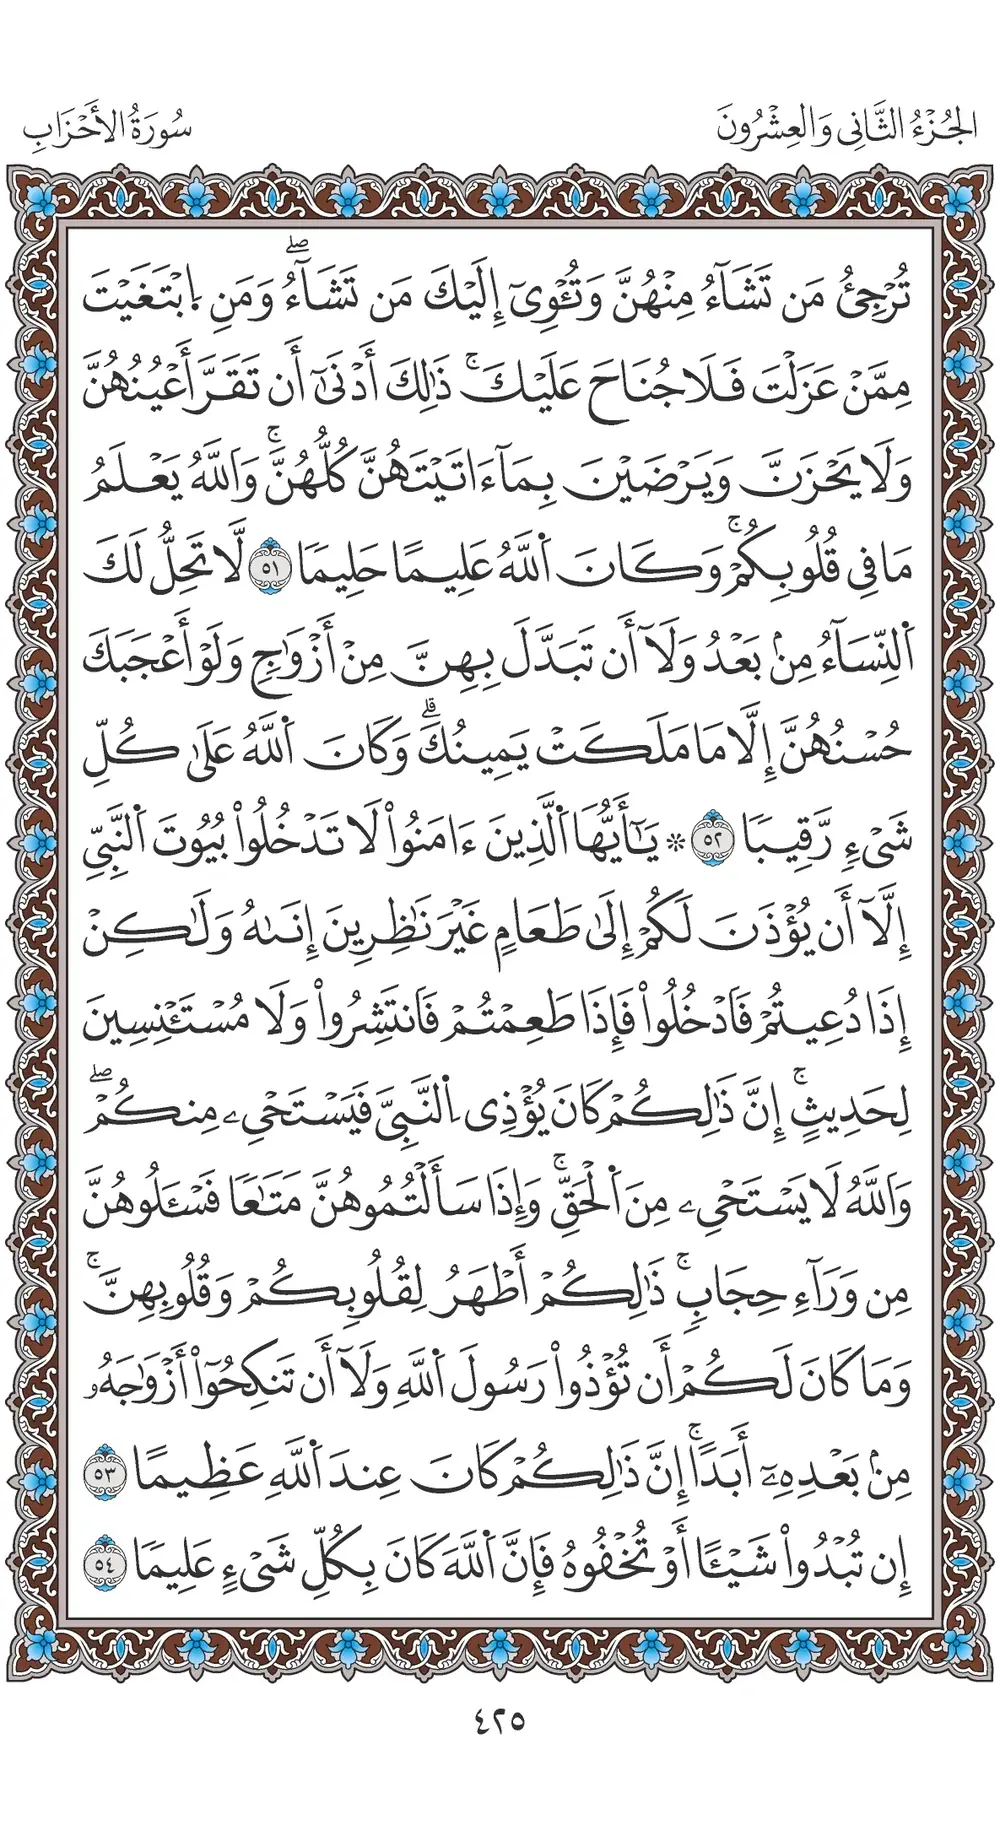 الجُزْءُ الثَّانِي وَالعِشْرُونَ
سُورَةُ الأَحْزَابِ
تُرْجِئُ مَن تَشَآءُ مِنْهُنَّ وَتُـْٔوِىٓ إِلَيْكَ مَن تَشَآءُۖ وَمَنِ اِ۪بْتَغَيْتَ
مِمَّنْ عَزَلْتَ فَلَا جُنَاحَ عَلَيْكَۚ ذَٰلِكَ أَدْنَىٰٓ أَن تَقَرَّ أَعْيُنُهُنَّ
وَلَا يَحْزَنَّ وَيَرْضَيْنَ بِمَآ ءَاتَيْتَهُنَّ كُلُّهُنَّۚ وَاَللَّهُ يَعْلَمُ
مَا فِي قُلُوبِكُمْۚ وَكَانَ اَ۬للَّهُ عَلِيمًا حَلِيمًا ٥١ لَّا تَحِلُّ لَكَ
اَ۬لنِّسَآءُ مِنۢ بَعْدُ وَلَآ أَن تَبَدَّلَ بِهِنَّ مِنْ أَزْوَٰجٍ وَلَوْ أَعْجَبَكَ
حُسْنُهُنَّ إِلَّا مَا مَلَكَتْ يَمِينُكَۗ وَكَانَ اَ۬للَّهُ عَلَىٰ كُلِّ
شَىْءٍ رَّقِيبًا ٥٢ ۞ يَـٰٓأَيُّهَا اَ۬لَّذِينَ ءَامَنُواْ لَا تَدْخُلُواْ بُيُوتَ اَ۬لنَّبِيِّ
إِلَّآ أَن يُؤْذَنَ لَكُمْ إِلَىٰ طَعَامٍ غَيْرَ نَـٰظِرِينَ إِنَىٰهُ وَلَـٰكِنْ
إِذَا دُعِيتُمْ فَاَدْخُلُواْ فَإِذَا طَعِمْتُمْ فَاَنتَشِرُواْ وَلَا مُسْتَـْٔنِسِينَ
لِحَدِيثٍۚ إِنَّ ذَٰلِكُمْ كَانَ يُؤْذِى اِ۬لنَّبِيَّ فَيَسْتَحْيِۦ مِنكُمْۖ
وَاَللَّهُ لَا يَسْتَحْيِۦ مِنَ اَ۬لْحَقِّۚ وَإِذَا سَأَلْتُمُوهُنَّ مَتَـٰعًا فَسْـَٔلُوهُنَّ
مِن وَرَآءِ حِجَابٍۚ ذَٰلِكُمْ أَطْهَرُ لِقُلُوبِكُمْ وَقُلُوبِهِنَّۚ
وَمَا كَانَ لَكُمْ أَن تُؤْذُواْ رَسُولَ اَ۬للَّهِ وَلَآ أَن تَنكِحُوٓاْ أَزْوَٰجَهُۥ
مِنۢ بَعْدِهِۦٓ أَبَدًاۚ إِنَّ ذَٰلِكُمْ كَانَ عِندَ اَ۬للَّهِ عَظِيمًا ٥٣
إِن تُبْدُواْ شَيْـًٔا أَوْ تُخْفُوهُ فَإِنَّ اَ۬للَّهَ كَانَ بِكُلِّ شَىْءٍ عَلِيمًا ٥٤
٤٢٥